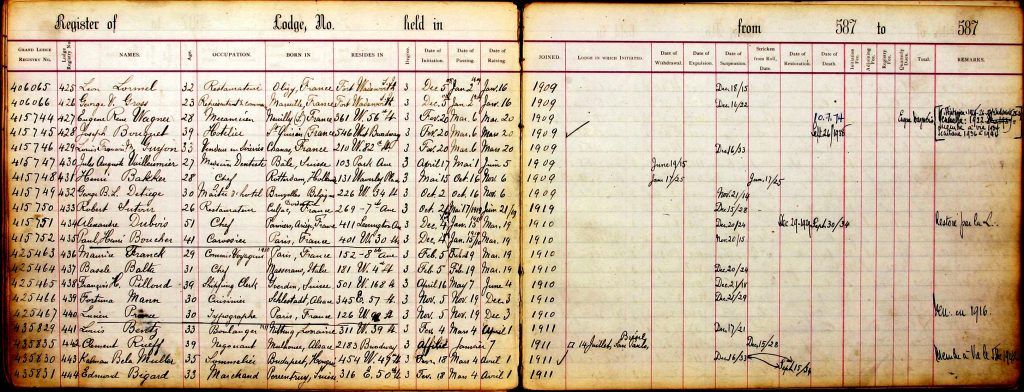 Register of Lodge, No. held in from 587 to 587
GRAND LODGE REGISTRY NO. Lodge Registry No. NAMES. Age. OCCUPATION. BORN IN RESIDES IN Degree. Date of Initiation. Date of Passing. Date of Raising. JOINED. LODGE IN WHICH INITIATED. Date of Withdrawal. Date of Expulsion. Date of Suspension. Stricken from Roll, Date. Date of Restoration. Date of Death. Initiation Fee. Adjoining Fee. Registry Fee. Quarterly Dues. Total. REMARKS.
406065 425 Léon Lormel 32 Restaurateur France Fort Wadsworth 3 Dec. 5 Jan. 2 Jan. 16 1909 Dec 18/15
406066 426 George V. Gross 23 Marseille, France Fort Wadsworth 3 Dec. 5 Jan. 2 Jan. 16 1909 Dec 16/22
415744 427 Eugene René Wagner 28 Mecanicien Neuilly, France 361 W. 56 St 3 Fev 20 Mar. 6 Mar. 20 1909 10.7.74
415745 428 Joseph Bourguet 39 Hotelier France 546 West Broadway 3 Fev. 20 Mar. 6 Mar 20 1909
415746 429 Louis Guyon 33 France 210 W. 82 St 3 Fev. 20 Mar. 6 Mar 20 1909 Dec 16/33
415747 430 Jules Auguste Vuilleumier 27 Medecin Dentiste Bâle, Suisse 103 Park Av. 3 April 17 Mai 1 Juin 5 1909 June 19/15
415748 431 Henri Bakker 28 Chef Rotterdam, Holland 131 Waverley Place 3 Mai 15 Oct 16 Nov. 6 1909 Jan 17/25 Jan 17/25
415749 432 George B.L. Detiege 30 Maître d'hotel Bruxelles Belgique 226 W. 34 St 3 Oct. 2 Oct 16 Nov. 6 1909 Nov 21/14
415750 433 Robert Dutoir 26 Restaurateur France 269 - 7e Av. 3 Oct. 2 Mai 17/1919 Juin 21/19 1919 Dec 15/28
415751 434 Alexandre Dubois 51 Chef Pamiers, Ariège, France 411 Lexington Av. 3 Dec. 4 Jan. 15 Mar. 19 1910 Dec 20/24 Sept. 30/34
415752 435 Paul Henri Boucher 41 Carossier Paris, France 401 W. 30 St 3 Dec. 4 Jan. 15 Mar. 19 1910 Nov 20/15
425463 436 Maurice Franck 29 Commis Voyageur Paris, France 152 - 8e Av. 3 Fev. 5 Fev 19 Mar. 19 1910
425464 437 Bassle Balte 31 Chef Masserano, Italie 181 W. 4 St 3 Fev. 5 Fev. 19 Mar. 19 1910 Dec 20/24
425465 438 François H. Pilloud 39 Shipping Clerk Yverdon, Suisse 501 W. 168 St 3 April 16 May 7 June 4 1910 Dec 21/18
425466 439 Fortuna Mann 30 Cuisinier Schlestadt, Alsace 345 E. 57 St 3 Nov. 5 Nov. 19 Dec. 3 1910 Dec 21/29
425467 440 Lucien 30 Typographe Paris, France 126 W. St 3 Nov. 5 Nov. 19 Dec 3 1910 en 1916.
435829 441 Louis Bentz 33 Boulanger Lorraine 311 W. 39 St 3 Fev. 4 Mars 4 April 1 1911 Dec 17/21
435835 442 Clement Rueff 39 Negociant Mulhouse, Alsace 2183 Broadway 3 Janvier 7 1911 14 Juillet, San Paulo Brésil Dec 15/28
435830 443 Kalman Bela Muller 35 Budapest, Hongrie 454 W. 49 St 3 Fev. 18 Mar 4 Avril 1 1911 Dec 16/33 Sept 15/34
435831 444 Edmond Bigard 33 Marchand Porrentruy, Suisse 316 E. 50 St 3 Fev. 18 Mar 4 Avril 1 1911